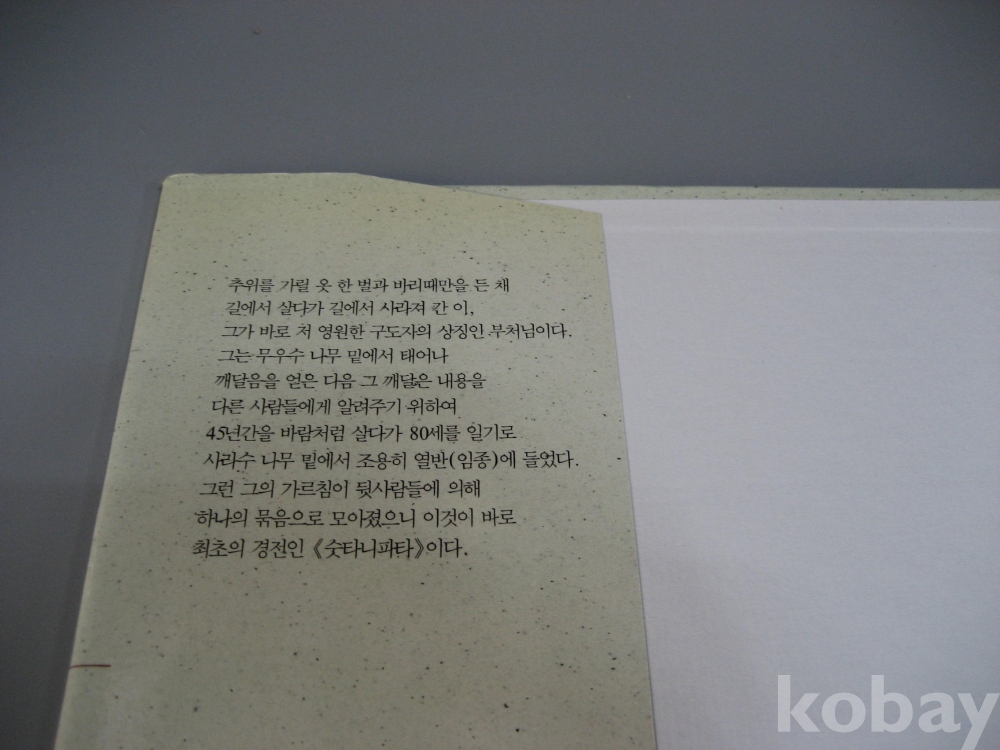 추위를 가릴 옷 한 벌과 바리때만을 든 채
길에서 살다가 길에서 사라져 간 이,
그가 바로 저 영원한 구도자의 상징인 부처님이다.
그는 무우수 나무 밑에서 태어나
깨달음을 얻은 다음 그 깨달은 내용을
다른 사람들에게 알려주기 위하여
45년간을 바람처럼 살다가 80세를 일기로
사라수 나무 밑에서 조용히 열반(임종)에 들었다.
그런 그의 가르침이 뒷사람들에 의해
하나의 묶음으로 모아졌으니 이것이 바로
최초의 경전인 《숫타니파타》이다.
kobay